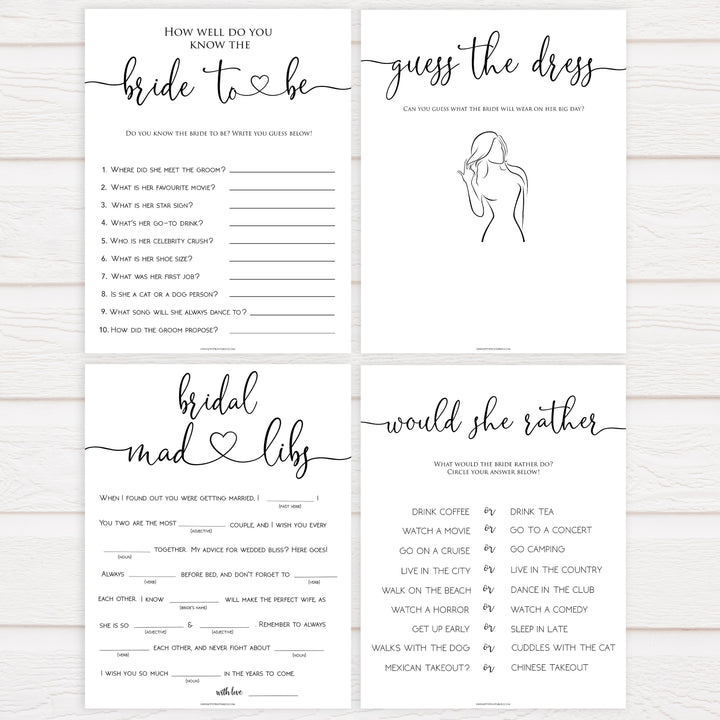 How well do you
know the
bride to be
Do you know the bride to be? Write you guess below!
1. Where did she meet the groom?
2. What is her favourite movie?
3. What is her star sign?
4. What's her go-to drink?
5. Who is her celebrity crush?
6. What is her shoe size?
7. What was her first job?
8. Is she a cat or a dog person?
9. What song will she always dance to?
10. How did the groom propose?
guess the dress
Can you guess what the bride will wear on her big day?
bridal
mad libs
When I found out you were getting married, I ________ !
(past verb)
You two are the most ________ couple, and I wish you every
(adjective)
________ together. My advice for wedded bliss? Here goes!
(noun)
Always ________ before bed, and don't forget to ________
(verb) (verb)
each other. I know ________ will make the perfect wife, as
(bride's name)
she is so ________ & ________ . Remember to always
(adjective) (adjective)
________ each other, and never fight about ________
(verb) (noun)
I wish you so much ________ in the years to come.
(noun)
with love ________
would she rather
What would the bride rather do?
Circle your answer below!
Drink coffee or Drink tea
Watch a movie or Go to a concert
Go on a cruise or Go camping
Live in the city or Live in the country
Walk on the beach or Dance in the club
Watch a horror or Watch a comedy
Get up early or Sleep in late
Walks with the dog or Cuddles with the cat
Mexican takeout? or Chinese takeout